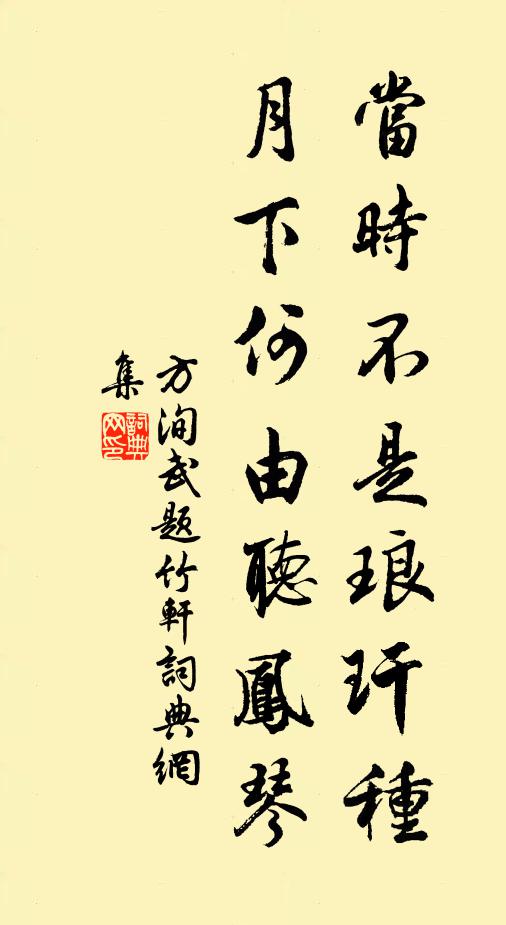 當時不是琅玕種
月下何由聽鳳琴
方洵武題竹軒詞典網
集
詞典
网印